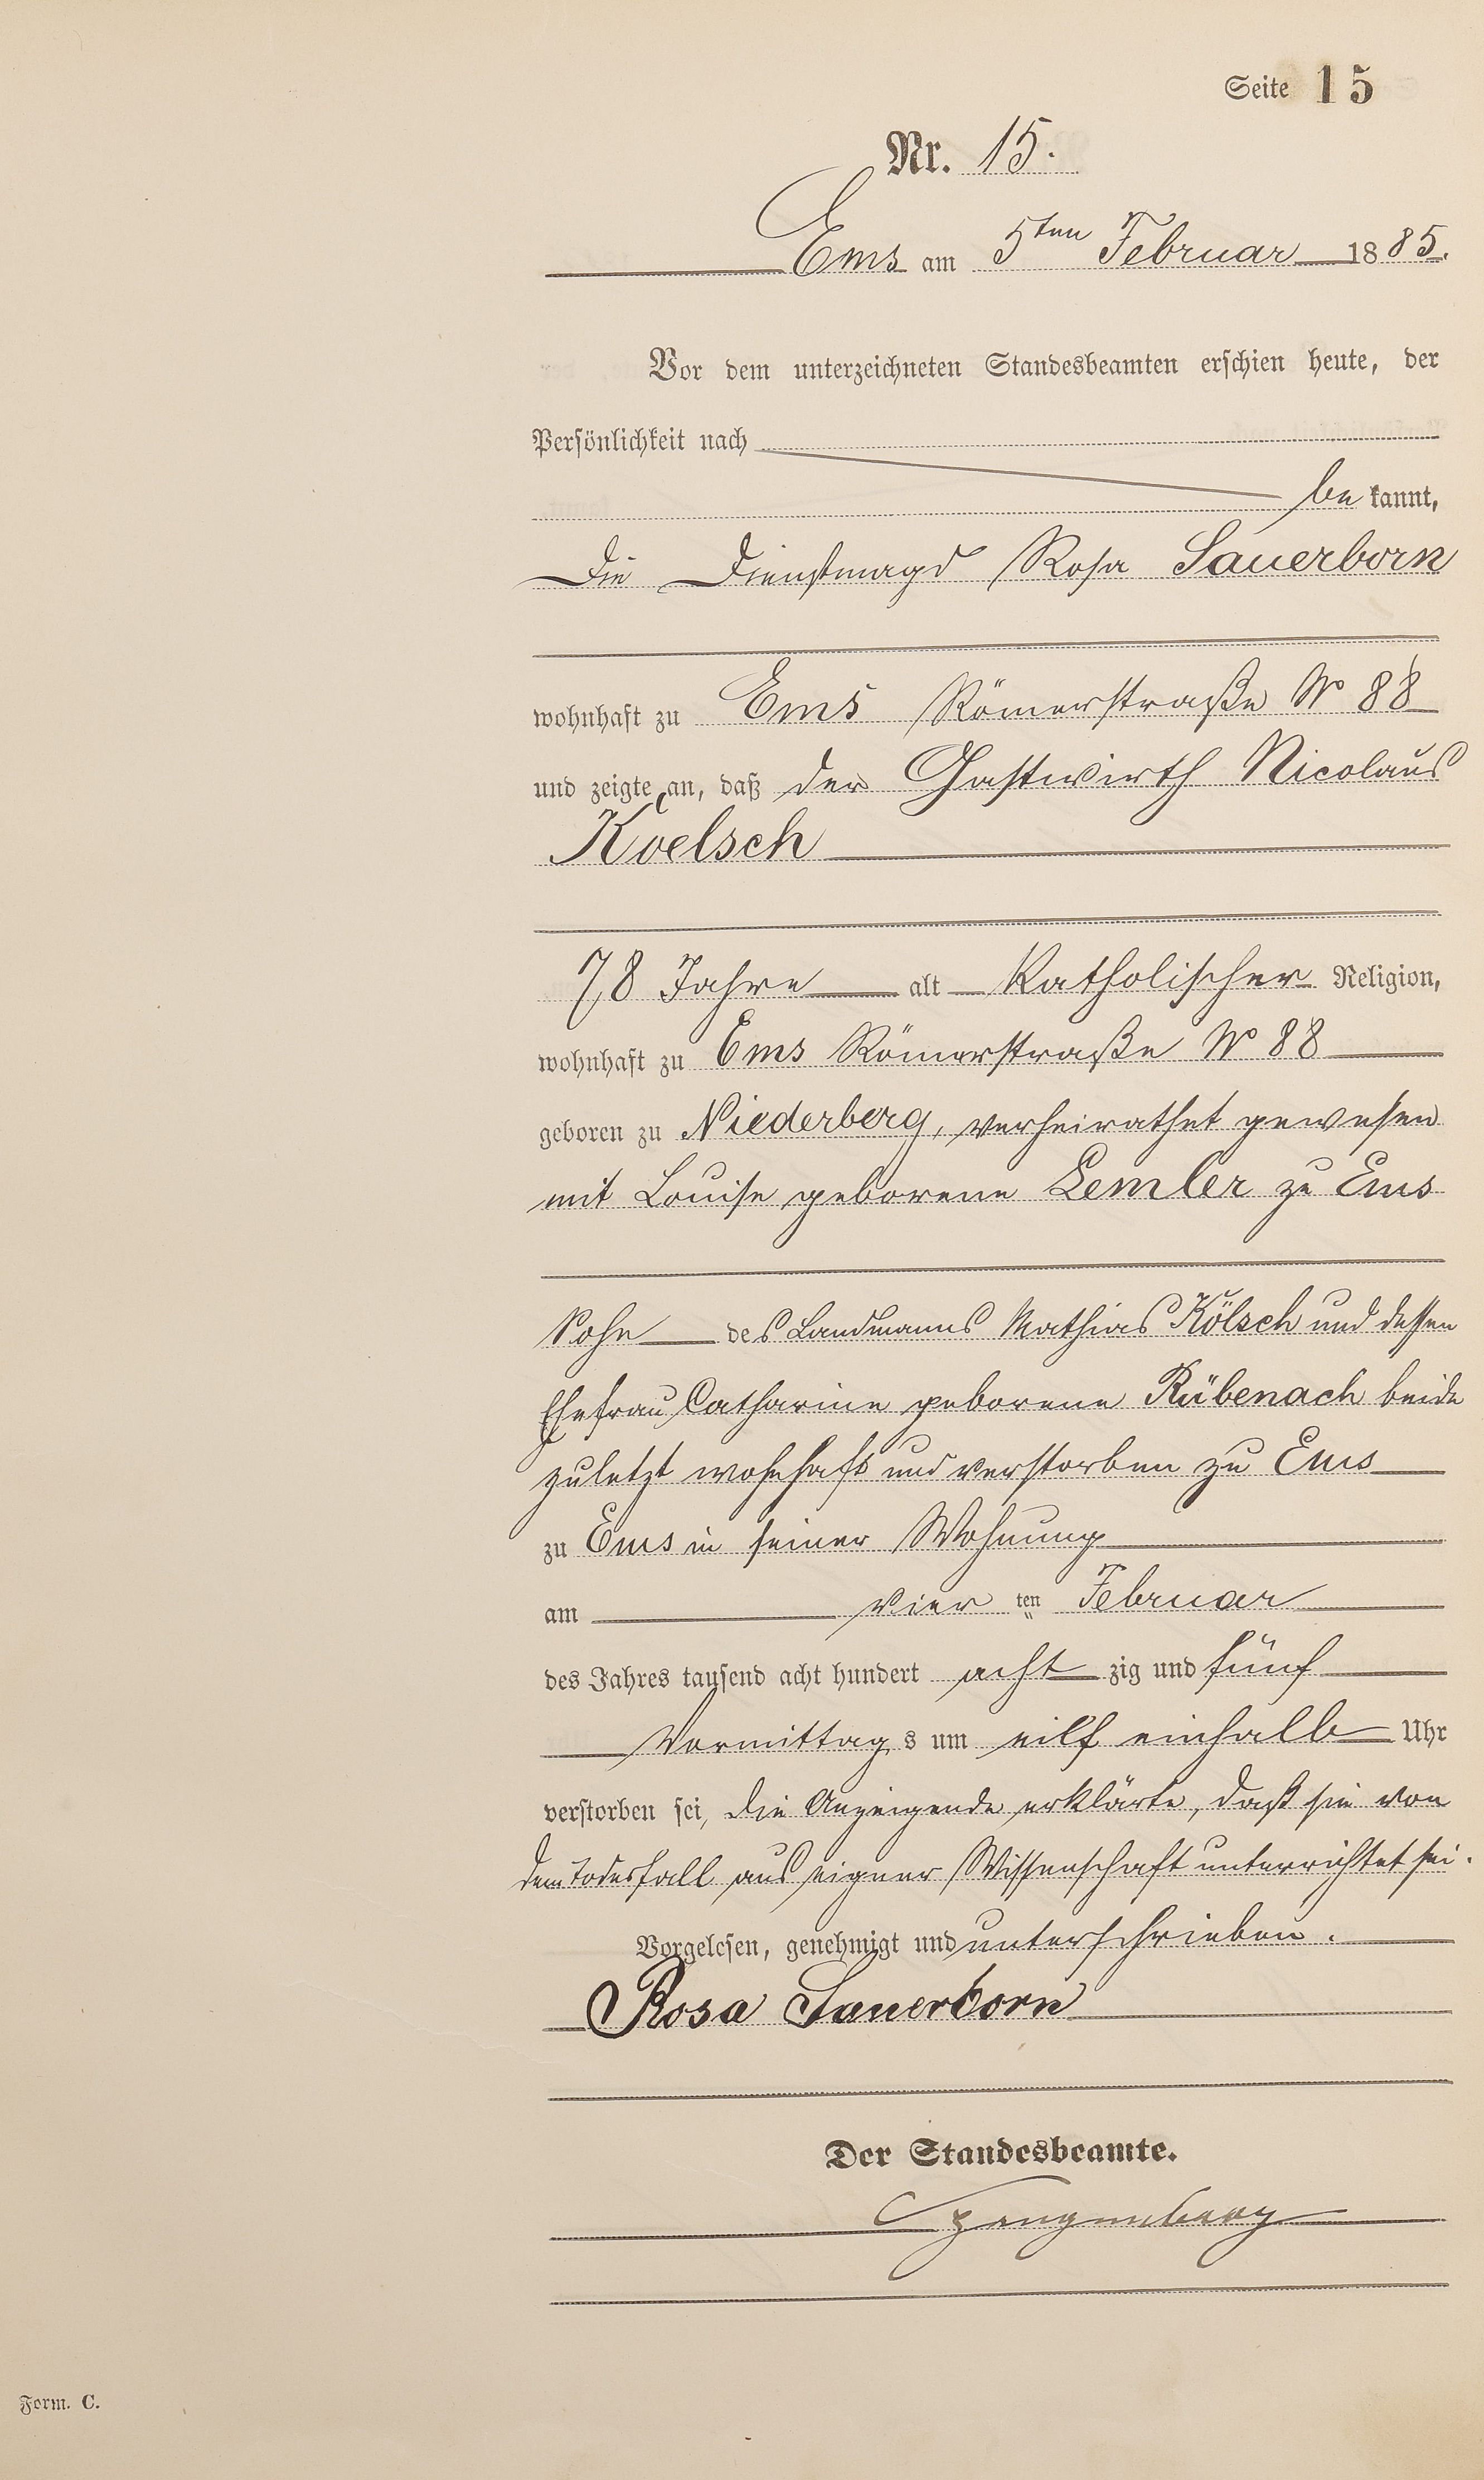 Seite 15
Nr. 15.
Ems am 5ten Februar 1885.
Vor dem unterzeichneten Standesbeamten erschien heute, der
Persönlichkeit nach
be kannt,
die Dienstmagd Rosa Sauerborn
wohnhaft zu Ems Römerstraße No 88
und zeigte an, daß der Gastwirth Nicolaus
Koelsch
78 Jahre alt Katholischer Religion,
wohnhaft zu Ems Römerstraße No 88
geboren zu Niederberg, verheirathet gewesen
mit Louise geborene Lemler zu Ems
Sohn des Landmanns Mathias Kölsch und dessen
Ehefrau Catharine geborene Rübenach beide
zuletzt wohnhaft und verstorben zu Ems
zu Ems in seiner Wohnung
am vier ten Februar
des Jahres tausend acht hundert acht zig und fünf
Vormittag s um eilf einhalb Uhr
verstorben sei, die Anzeigende erklärte, daß sie von
dem Todesfall aus eigner Wissenschaft unterrichtet sei.
Vorgelesen, genehmigt und unterschrieben.
Rosa Sauerborn
Der Standesbeamte.
Spangenberg
Form. C.